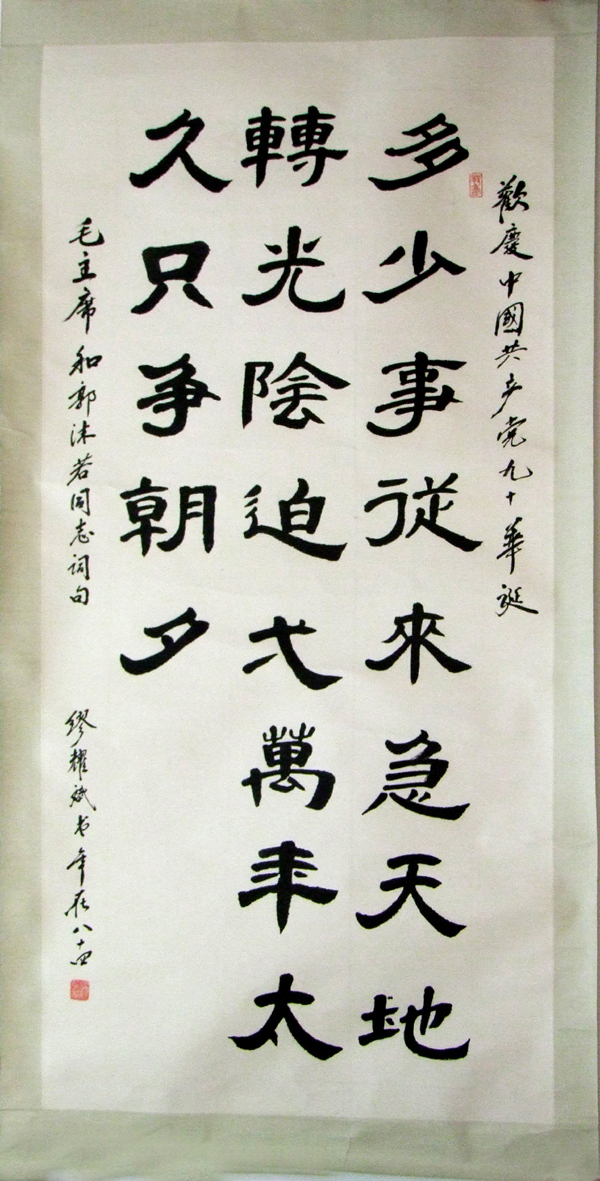 歡慶中國共产党九十華誕
多少事従來急天地
轉光陰迫弌萬年太
久只争朝夕
毛主席和郭沫若同志词句
繆耀斌书年在八十四